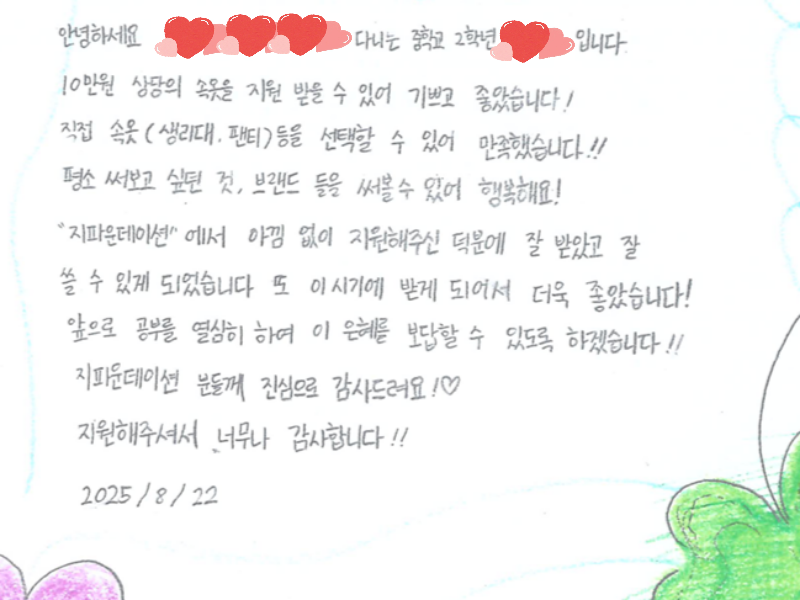 안녕하세요 다니는 중학교 2학년 입니다.
10만원 상당의 속옷을 지원 받을 수 있어 기쁘고 좋았습니다!
직접 속옷(생리대. 팬티)등을 선택할 수 있어 만족했습니다!!
평소 써보고 싶던 것, 브랜드 들을 써볼수 있어 행복해요!
"지파운데이션"에서 아낌 없이 지원해주신 덕분에 잘 받았고 잘
쓸 수 있게 되었습니다 또 이시기에 받게 되어서 더욱 좋았습니다!
앞으로 공부를 열심히 하여 이 은혜를 보답할 수 있도록 하겠습니다!!
지파운데이션 분들께 진심으로 감사드려요!♡
지원해주셔서 너무나 감사합니다!!
2025/8/22